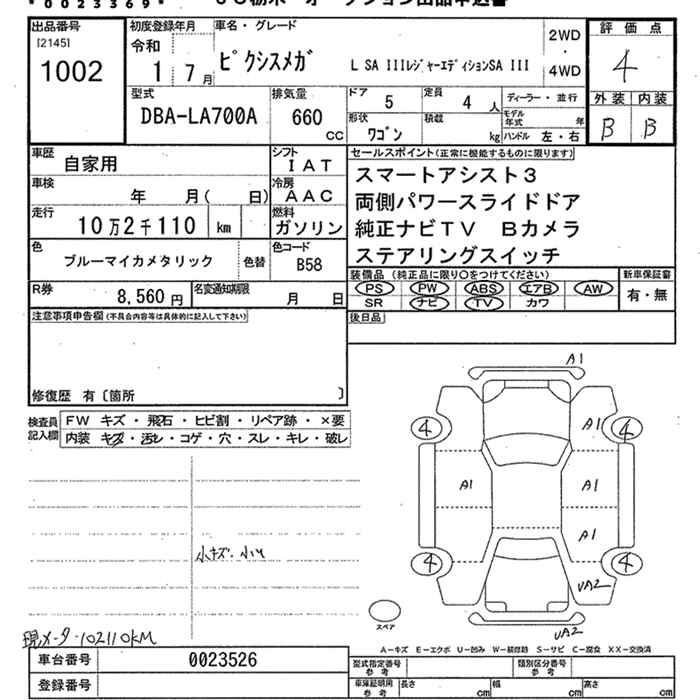 *0023369*
出品番号
[2145]
1002
初度登録年月
令和
1 7月
車名・グレード
ピクシスメガ L SA IIIレジャーエディションSA III
2WD
・
4WD
評価点
4
外装 内装
B B
型式
DBA-LA700A
排気量
660
CC
ドア 5
定員 4 人
形状 ワゴン
積載 kg
ディーラー・並行
モデル年式 年
ハンドル 左・右
車歴 自家用
シフト IAT
車検 年 月( 日)
冷房 AAC
走行 10万2千110 km
燃料 ガソリン
色 ブルーマイカメタリック
色替
色コード B58
R券 8,560円
名変通知期限 月 日
セールスポイント(正常に機能するものに限ります)
スマートアシスト3
両側パワースライドドア
純正ナビTV Bカメラ
ステアリングスイッチ
装備品(純正品に限り○をつけてください)
PS PW ABS エアB AW
SR ナビ TV カワ
新車保証書
有・無
注意事項申告欄(不具合内容等は具体的に記入して下さい)
後日品
修復歴 有〔箇所 〕
検査員記入欄
FW キズ・飛石・ヒビ割・リペア跡・×要
内装 キズ・汚レ・コゲ・穴・スレ・キレ・破レ
小キズ・小凹
現メータ・102110KM
A1
4 A1 4
A1 A1
A1
4 4
UA2
UA2
スペア
A−キズ E−エクボ U−凹み W−板修跡 S−サビ C−腐食 XX−交換済
車台番号 0023526
登録番号
型式指定番号 参考
類別区分番号 参考
車庫証明用 参考
長さ cm 幅 cm 高さ cm